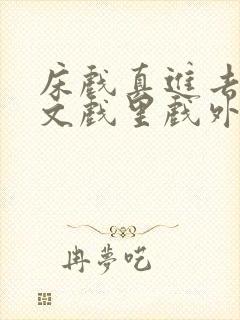 床戲真進去
文戲里戲外
冉夢呓